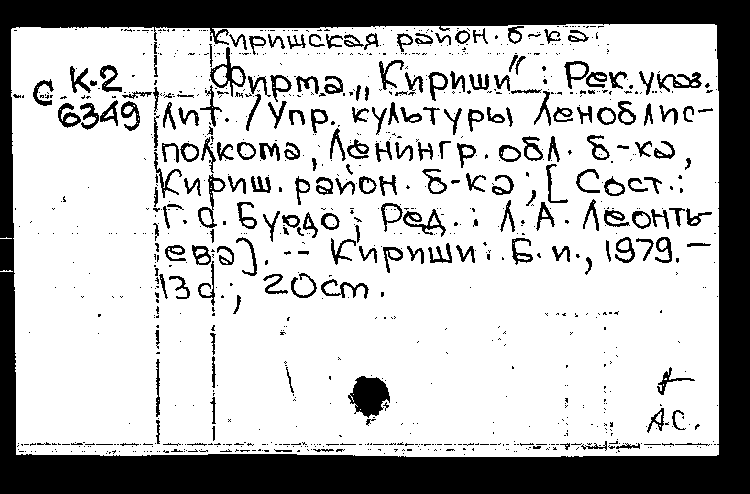 Киришская район. б-ка
С К-2
6349
Фирма „Кириши“ : Рек. указ.
лит. / Упр. культуры Леноблис-
полкома, Ленингр. обл. б-ка,
Кириш. район. б-ка ; [Сост.:
Г. С. Бурдо ; Ред. : Л. А. Леонть-
ева]. -- Кириши : Б. и., 1979. –
13 с. ; 20 ст.
А.С.